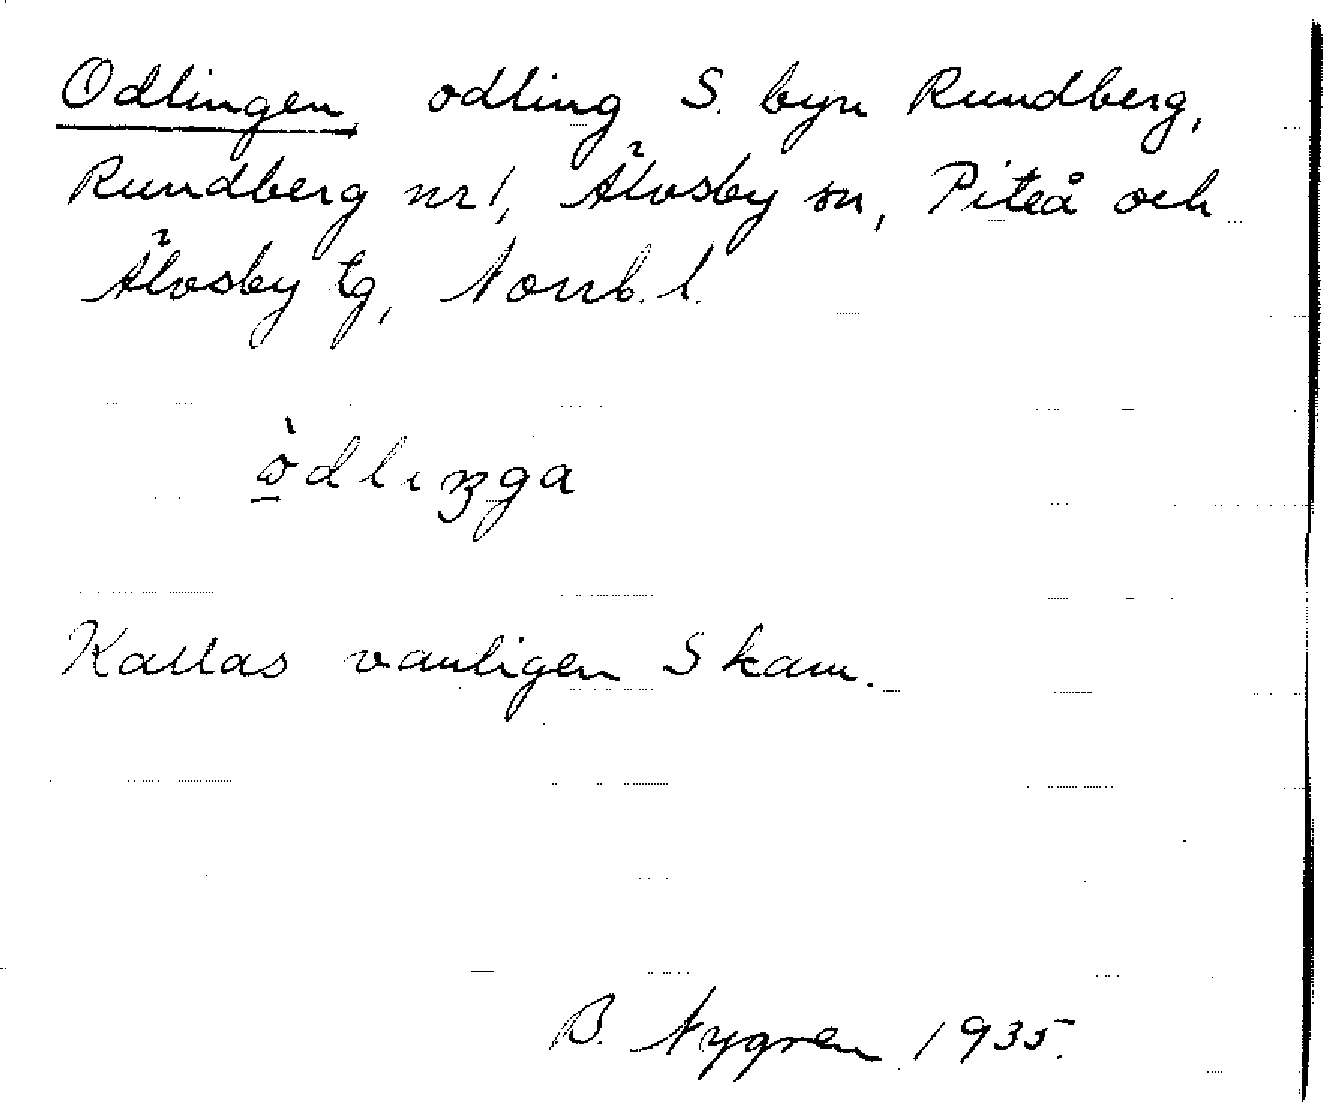 Odlingen odling S. byn Rundberg,
Rundberg nr 1, Älvsby sn, Piteå och
Älvsby tg, Norrb. l.
Kallas vanligen Skam.
B. Nygren 1935.